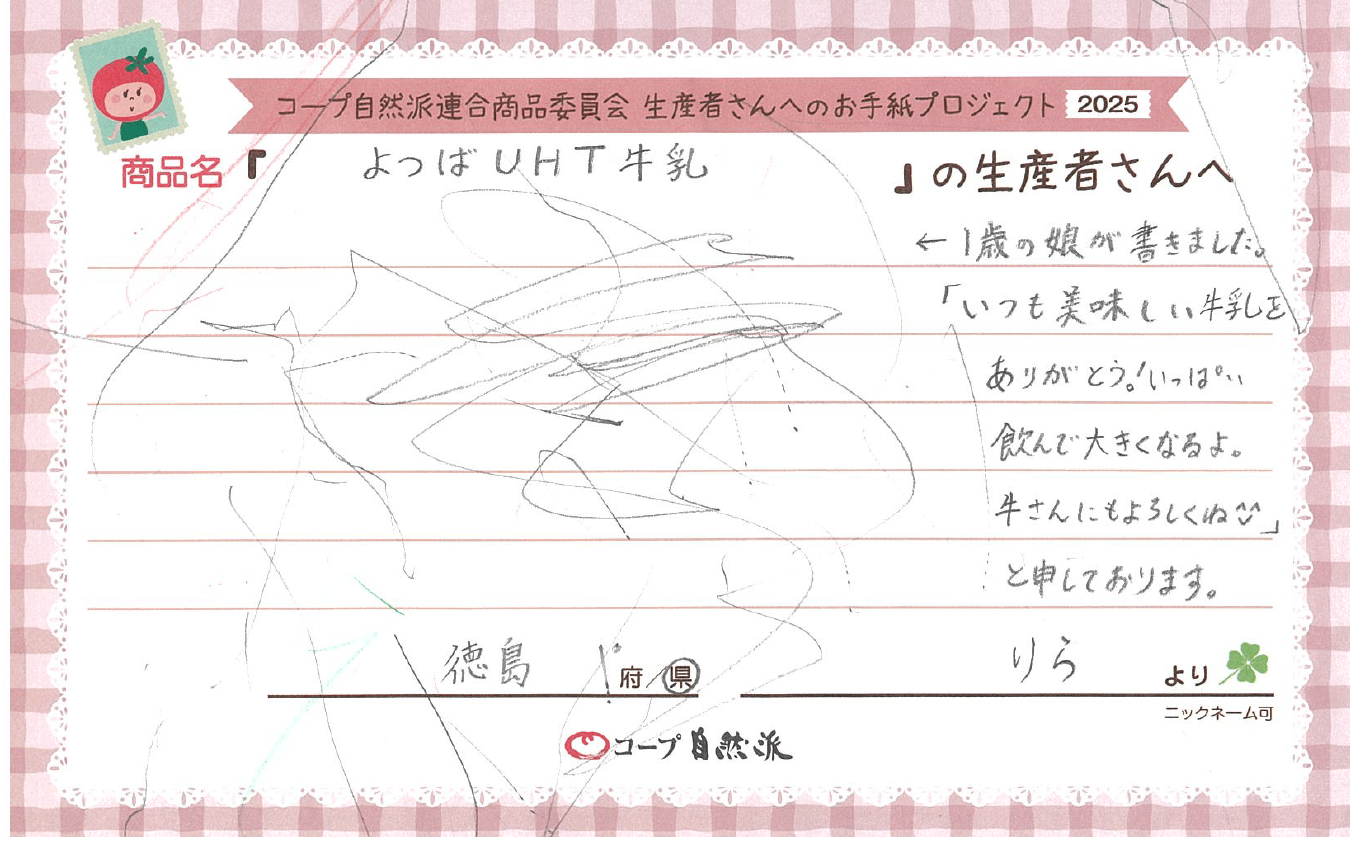 コープ自然派連合商品委員会 生産者さんへのお手紙プロジェクト 2025
商品名『 よつばUHT牛乳 』の生産者さんへ
←1歳の娘が書きました。
「いつも美味しい牛乳を
ありがとう！いっぱい
飲んで大きくなるよ。
牛さんにもよろしくね」
と申しております。
徳島 府 県 りら より
ニックネーム可
コープ自然派